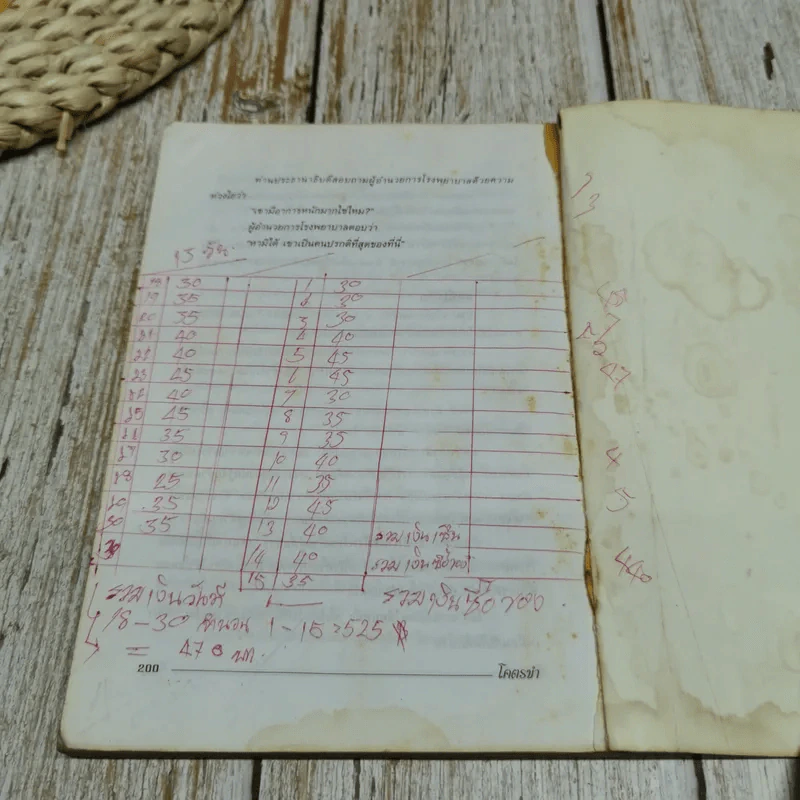 ท่านประธานาธิบดีสอบถามผู้อำนวยการโรงพยาบาลด้วยความ
ห่วงใยว่า
"เขามีอาการหนักมากใช่ไหม?"
ผู้อำนวยการโรงพยาบาลตอบว่า
"หามิได้ เขาเป็นคนปรกติที่สุดของที่นี่"
15 วัน
30 1 30
19 35 2 30
20 35 3 30
21 40 4 40
22 40 5 45
23 45 45
40 7 30
25 45 8 35
35 9 35
27 30 10 40
28 25 11 35
35 12 45
30 35 13 40 รวมเงิน
14 40 รวมเงินซื้อของ
15 35
รวมเงินวันที่ รวมเงินซื้อของ
18 - 30 จำนวน 1 - 15 = 525
= 470 บาท
200 โคตรขำ
13
7
47
4
5
440